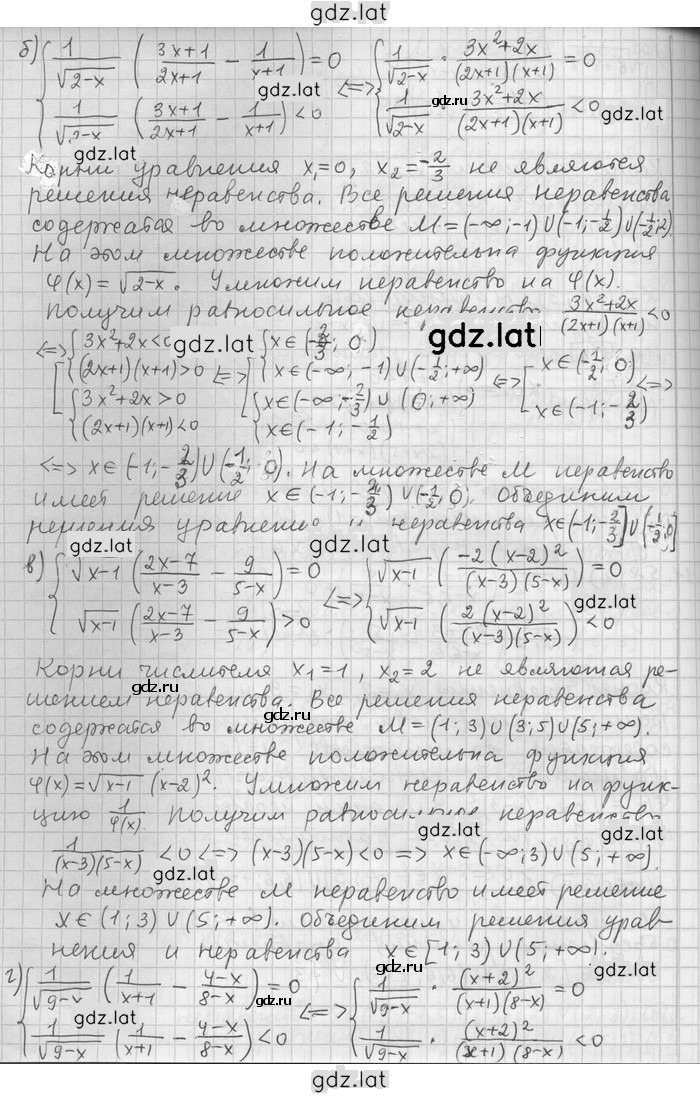 gdz.lat
б) { 1/√(2-x) (3x+1/2x+1 - 1/x+1) = 0 <=> { 1/√(2-x) · 3x²+2x/(2x+1)(x+1) = 0
gdz.lat
{ 1/√(2-x) (3x+1/2x+1 - 1/x+1) < 0 { 1/√(2-x) · 3x²+2x/(2x+1)(x+1) < 0
gdz.lat
gdz.lat
Корни уравнения x₁=0, x₂=-2/3 не являются
решения неравенства. Все решения неравенства
содержатся во множестве M=(-∞;-1)∪(-1;-1/2)∪(-1/2;2).
На этом множестве положительна функция
φ(x)=√(2-x). Умножим неравенство на φ(x).
Получим равносильное неравенство 3x²+2x/(2x+1)(x+1) < 0
gdz.lat gdz.lat
<=> [ { 3x²+2x<0 { x∈(-2/3; 0)
{ (2x+1)(x+1)>0 <=> [ { x∈(-∞; -1)∪(-1/2; +∞) <=> [ x∈(-1/2; 0) <=>
{ 3x²+2x>0 { x∈(-∞; -2/3)∪(0; +∞) x∈(-1; -2/3)
{ (2x+1)(x+1)<0 { x∈(-1; -1/2)
<=> x∈(-1; -2/3)∪(-1/2; 0). На множестве M неравенство
имеет решение x∈(-1; -2/3)∪(-1/2; 0). Объединим
решения уравнения и неравенства x∈(-1; -2/3]∪(-1/2; 0]
gdz.lat
gdz.lat
в) { √(x-1) (2x-7/x-3 - 9/5-x) = 0 <=> { √(x-1) (-2(x-2)²/(x-3)(5-x)) = 0
{ √(x-1) (2x-7/x-3 - 9/5-x) > 0 { √(x-1) (2(x-2)²/(x-3)(5-x)) < 0
Корни числителя x₁=1, x₂=2 не являются ре-
gdz.ru
gdz.lat
шением неравенства. Все решения неравенства
gdz.lat
содержатся во множестве M=(1;3)∪(3;5)∪(5;+∞).
На этом множестве положительна функция
φ(x)=√(x-1) (x-2)². Умножим неравенство на функ-
цию 1/φ(x). Получим равносильное неравенство
gdz.lat
1/(x-3)(5-x) < 0 <=> (x-3)(5-x)<0 => x∈(-∞;3)∪(5;+∞).
gdz.lat
gdz.lat
На множестве M неравенство имеет решение
x∈(1;3)∪(5;+∞). Объединим решения урав-
нения и неравенства x∈[1;3)∪(5;+∞).
gdz.lat
г) { 1/√(9-x) (1/x+1 - 4-x/8-x) = 0 <=> { 1/√(9-x) · (x+2)²/(x+1)(8-x) = 0
gdz.lat
gdz.lat
{ 1/√(9-x) (1/x+1 - 4-x/8-x) < 0 { 1/√(9-x) · (x+2)²/(x+1)(8-x) < 0
gdz.lat